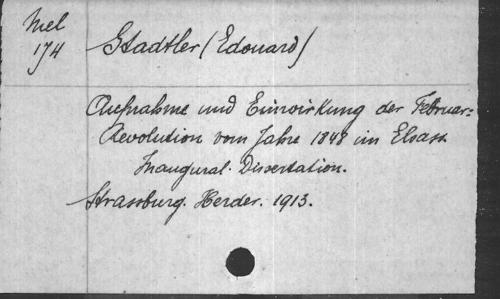 Mel
174
Stadtler (Edouard)
Aufnahme und Einwirkung der Februar=
Revolution vom Jahre 1848 im Elsass
Inaugural. Dissertation.
Strassburg. Herder. 1913.